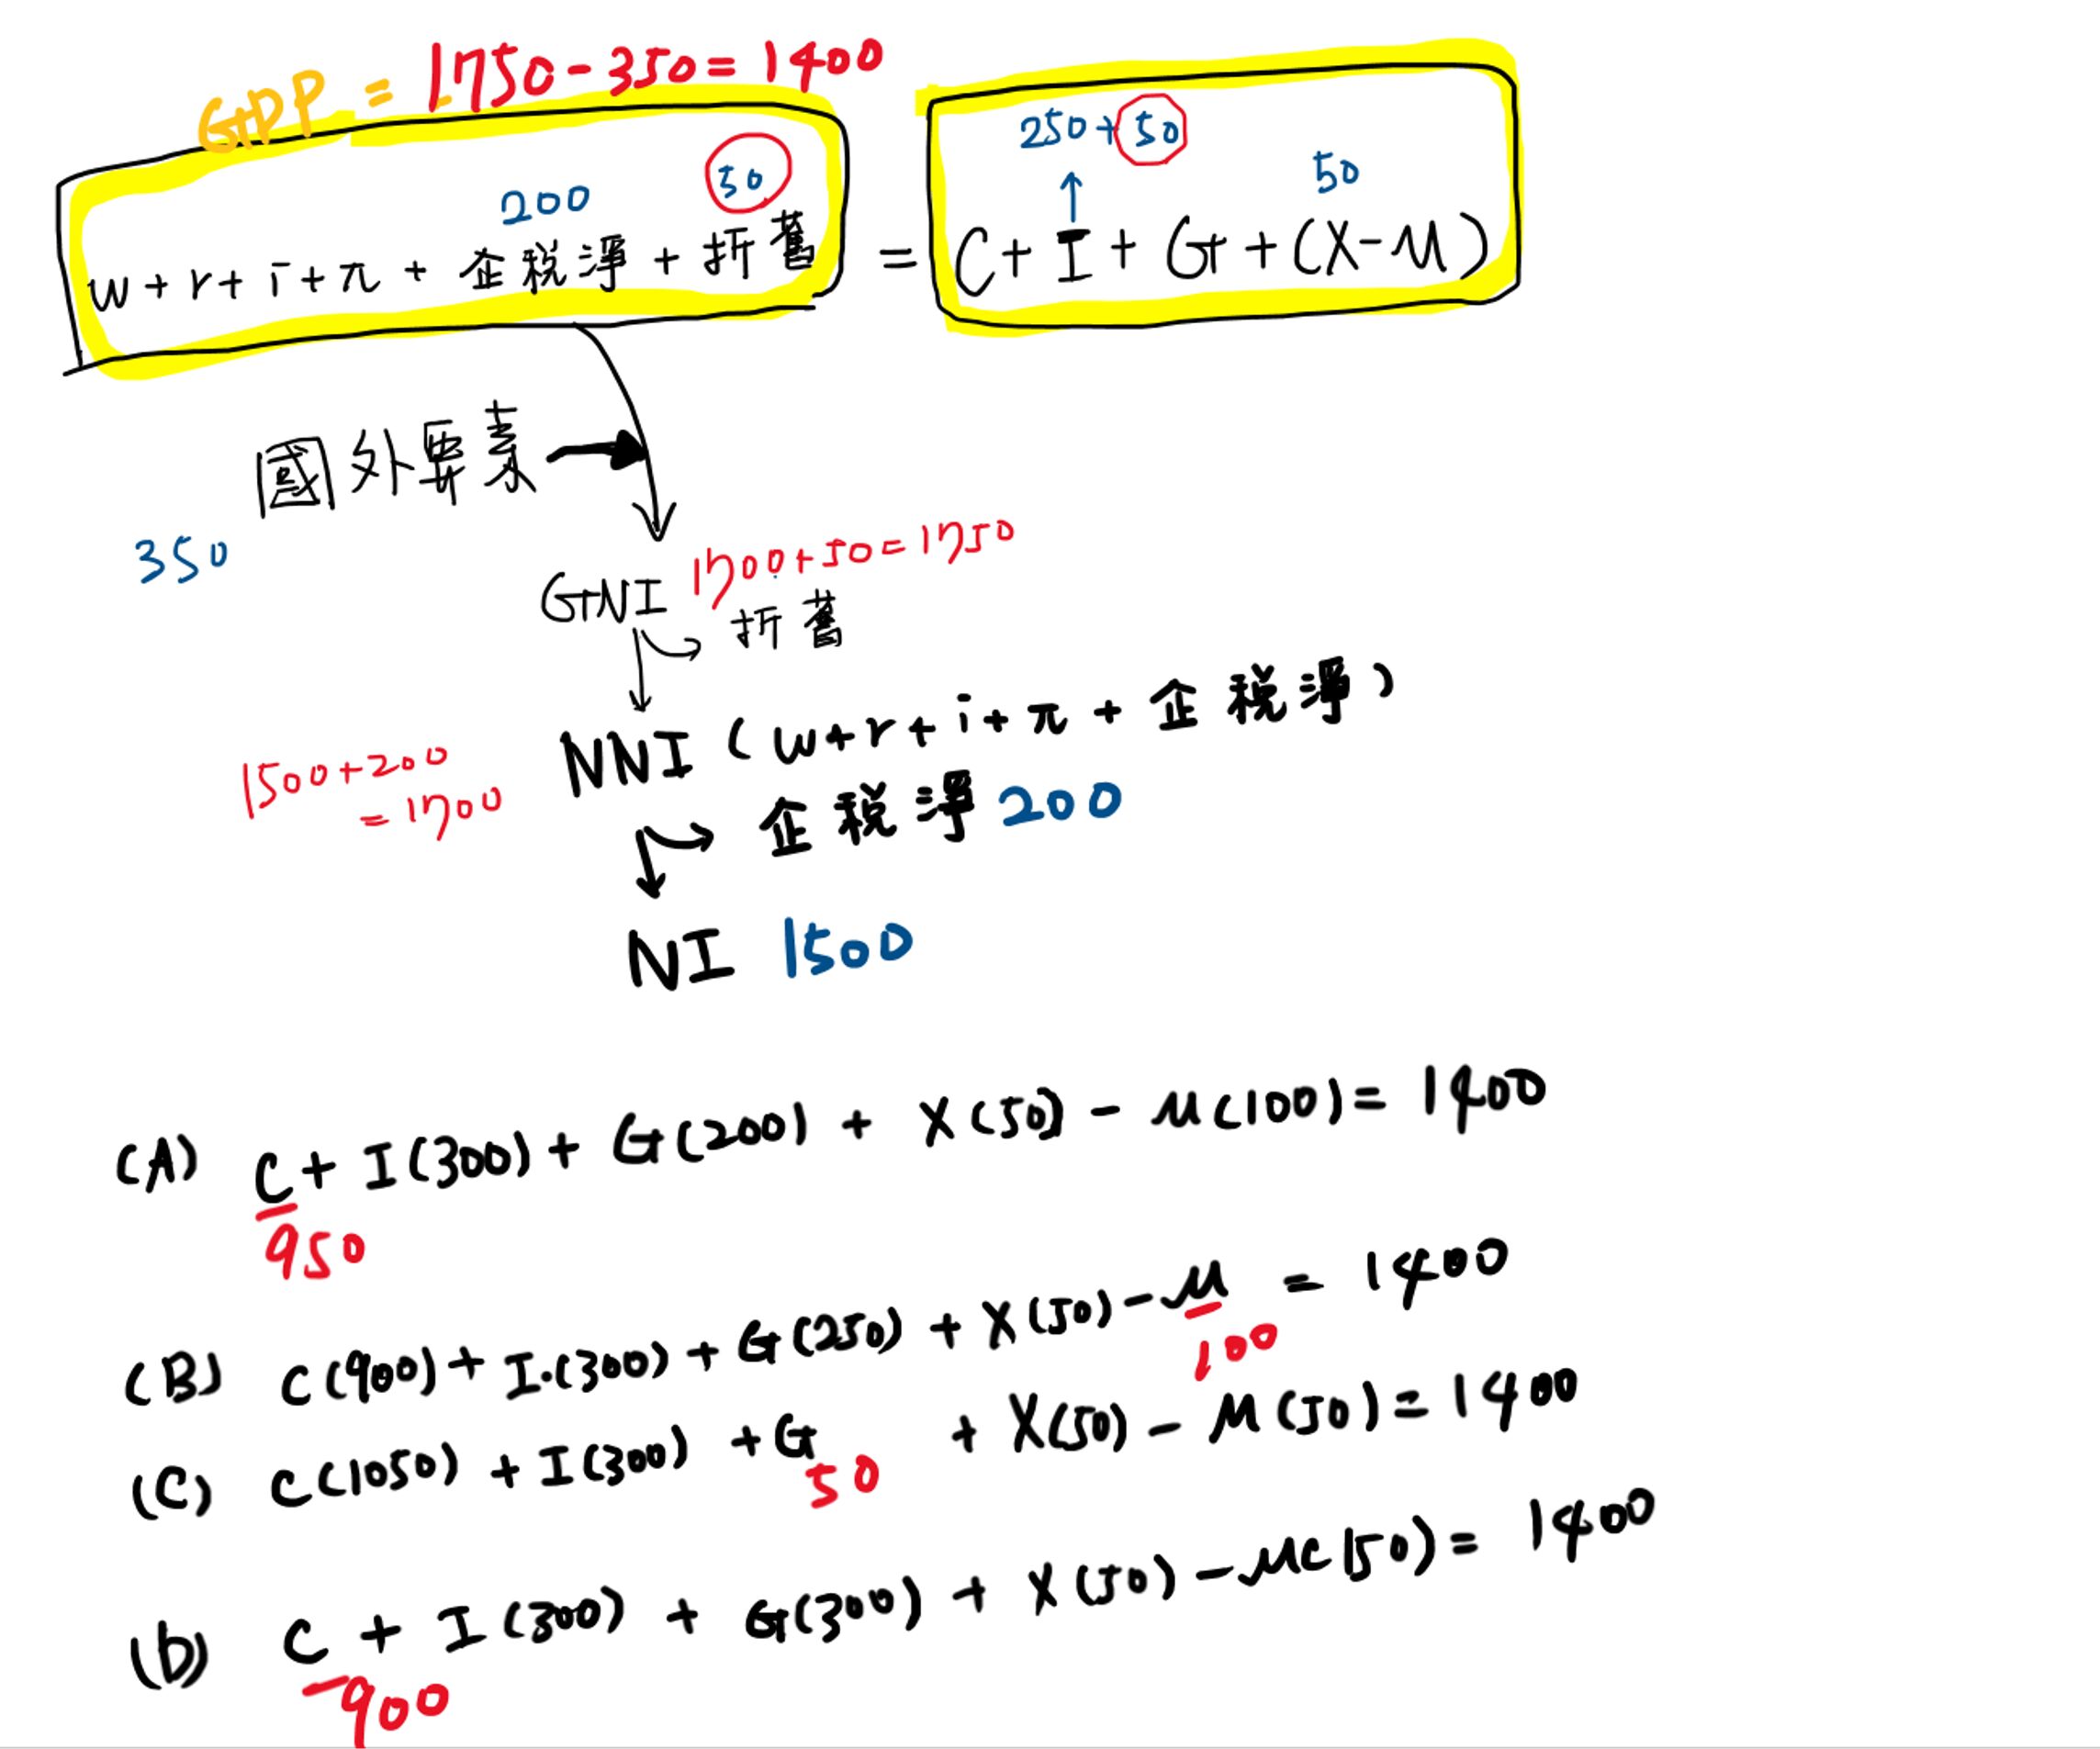 GDP = 1750-350=1400
200 50
w+r+i+π+企稅淨+折舊 = C+I+G+(X-M)
250+50
↑
50
國外要素→
350
GNI 1700+50=1750
折舊
NNI (w+r+i+π+企稅淨)
1500+200
=1700
企稅淨200
NI 1500
(A) C+I(300)+G(200)+X(50)-M(100)=1400
950
(B) C(900)+I(300)+G(250)+X(50)-M=1400
100
(C) C(1050)+I(300)+G+X(50)-M(50)=1400
50
(D) C+I(300)+G(300)+X(50)-M(150)=1400
900